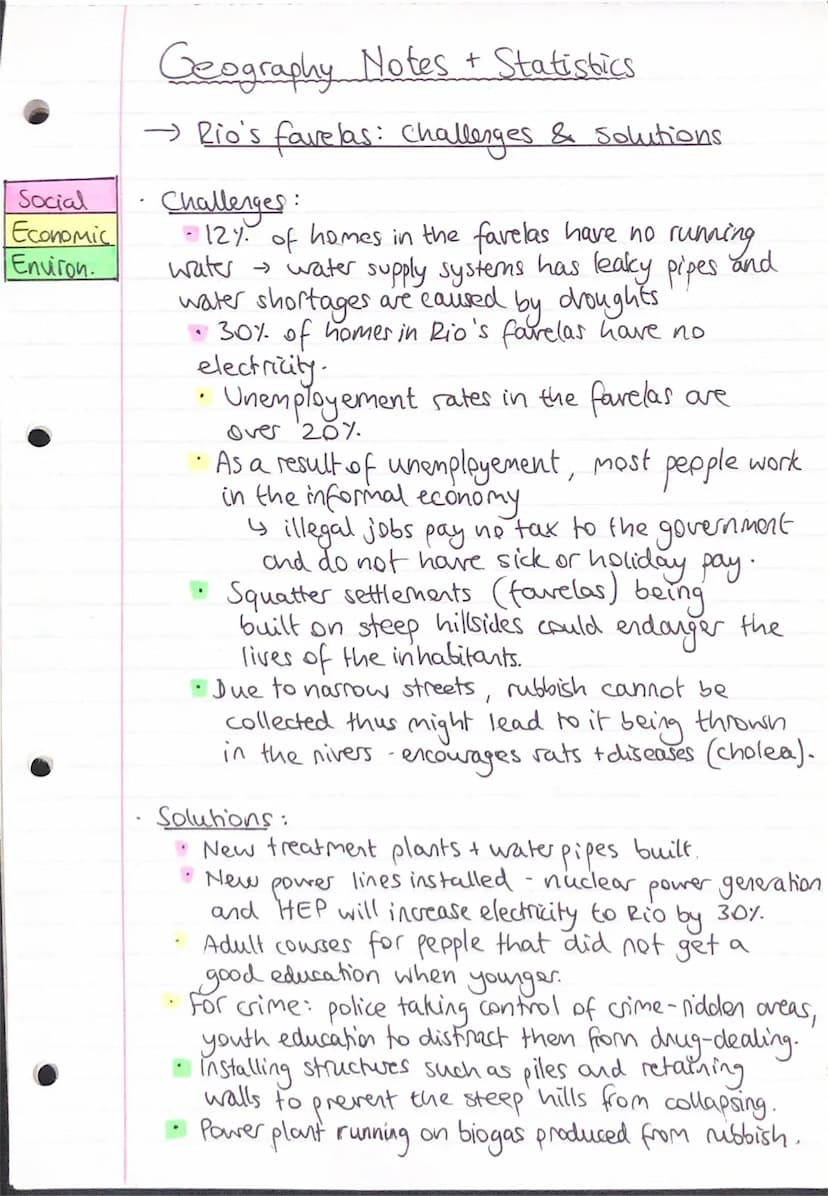 Geography Notes + Statistics
→ Rio's favelas: Challenges & Solutions
Social
Economic
Environ.
· Challenges:
· 12% of homes in the favelas have no running
water → water supply systems has leaky pipes and
water shortages are caused by droughts
· 30% of homes in Rio's favelas have no
electricity.
· Unemployement rates in the favelas are
over 20%.
· As a result of unemployement, most people work
in the informal economy
↳ illegal jobs pay no tax to the government
and do not have sick or holiday pay.
· Squatter settlements (favelas) being
built on steep hillsides could endanger the
lives of the inhabitants.
· Due to narrow streets, rubbish cannot be
collected thus might lead to it being thrown
in the rivers - encourages rats + diseases (cholea).
· Solutions:
· New treatment plants + water pipes built.
· New power lines installed - nuclear power generation
and HEP will increase electricity to Rio by 30%.
· Adult courses for pepple that did not get a
good education when younger.
· For crime: police taking control of crime-ridden areas,
youth education to distract them from drug-dealing.
· Installing structures such as piles and retaining
walls to prevent the steep hills from collapsing.
· Power plant running on biogas produced from rubbish.